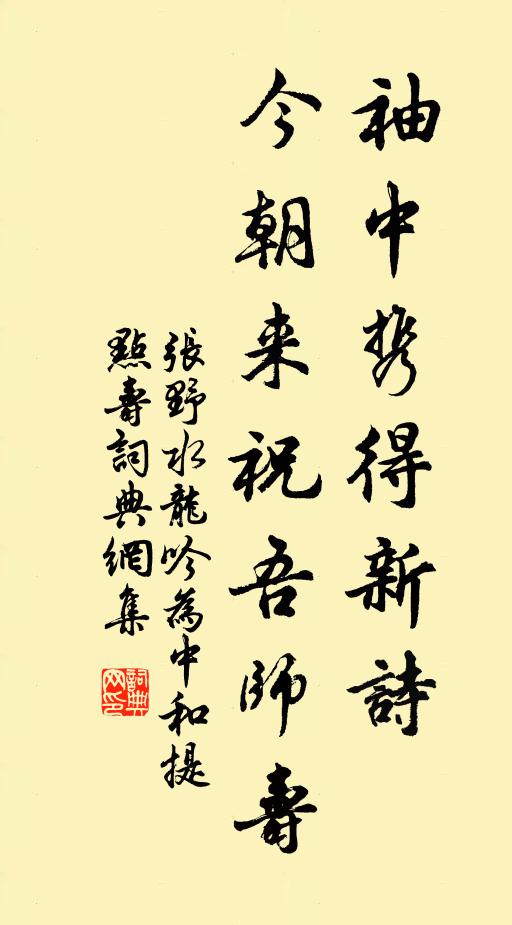 袖中携得新詩
今朝来祝吾師壽
張野水龍吟為中和提
點壽詞典網集
詞典
网印